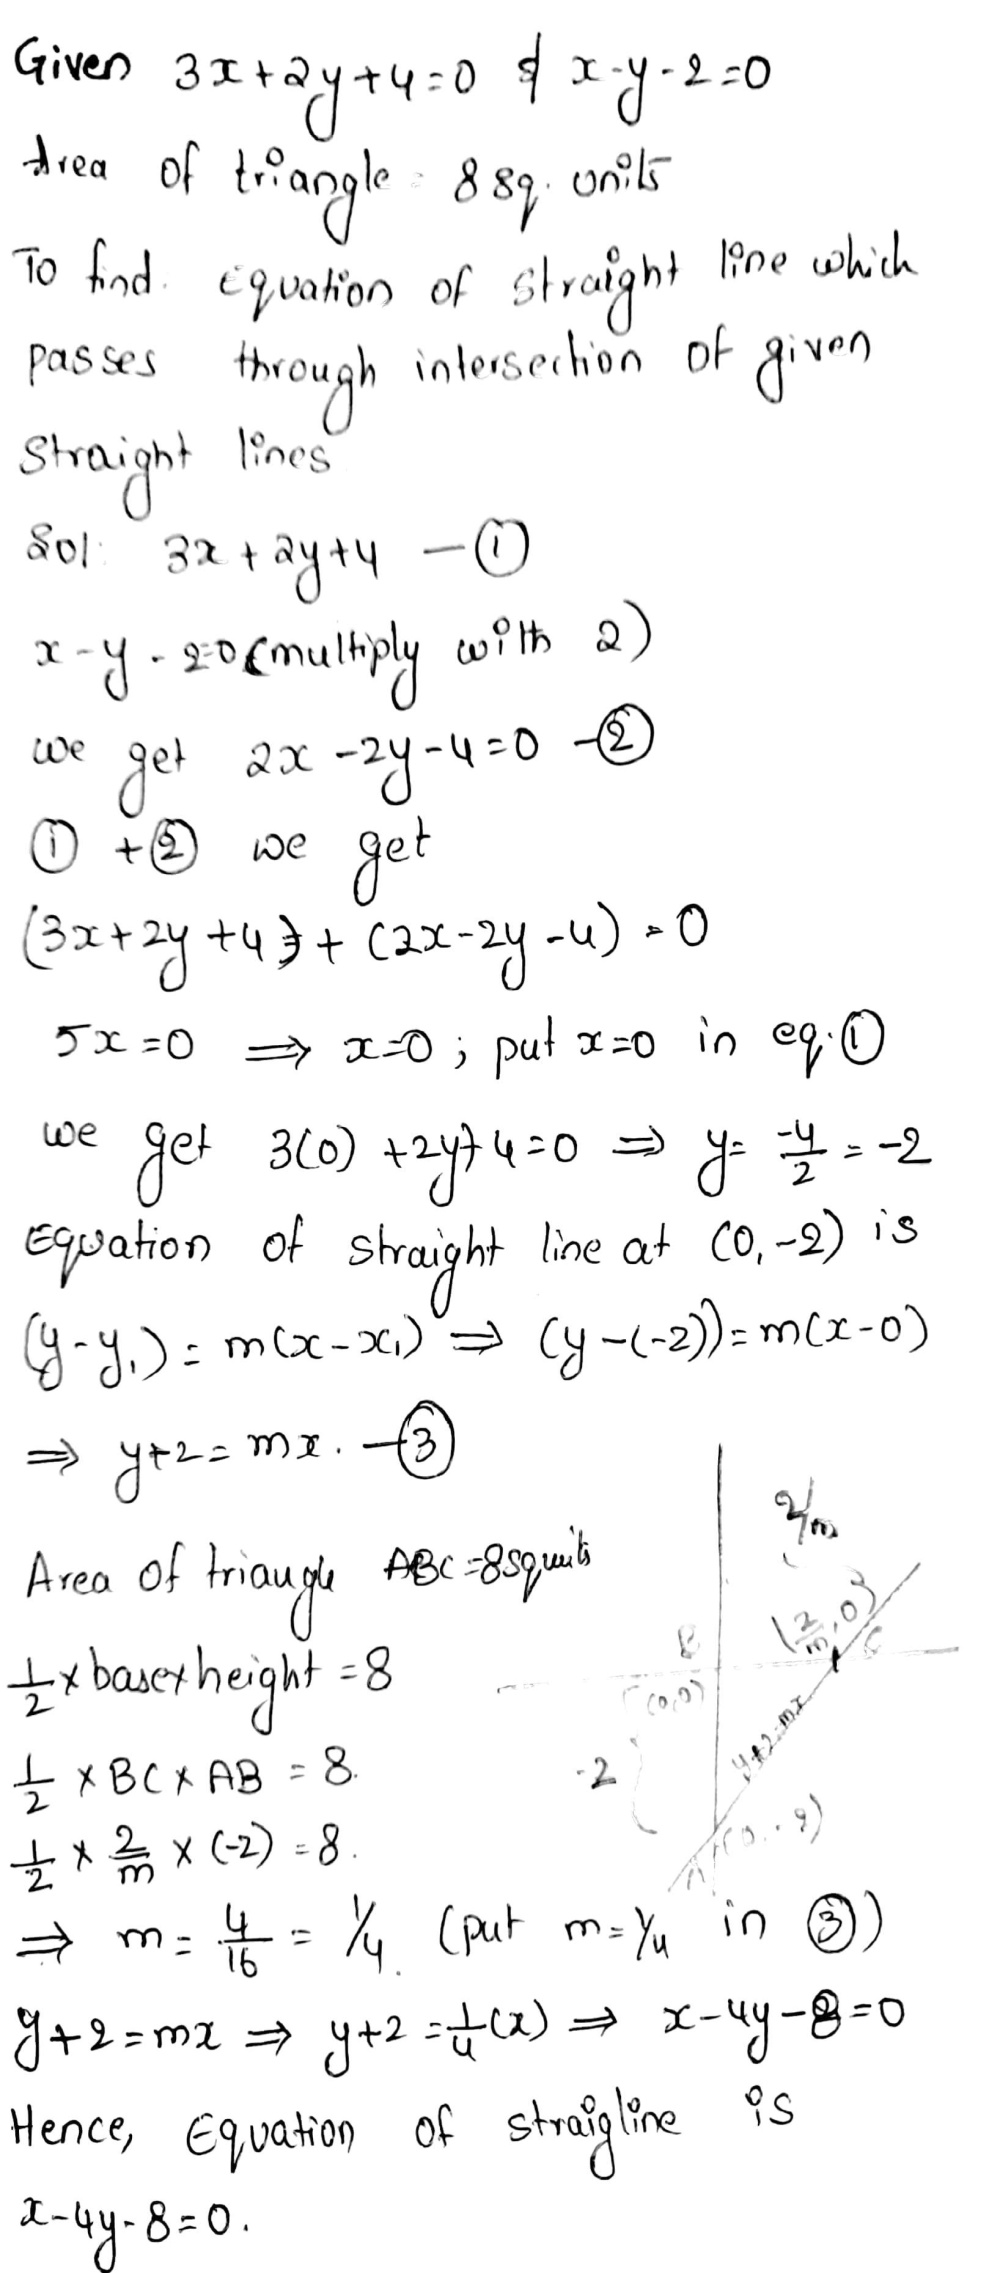 Given 3x+2y+4=0 & x-y-2=0
Area of triangle = 8 sq. units
To find. Equation of straight line which
passes through intersection of given
straight lines
Sol: 3x+2y+4 —①
x-y-2=0 (multiply with 2)
we get 2x-2y-4=0 -②
① +② we get
(3x+2y+4)+(2x-2y-4)=0
5x=0 ⟹ x=0; put x=0 in eq.①
we get 3(0)+2y+4=0 ⟹ y= -4/2 = -2
Equation of straight line at (0,-2) is
(y-y₁)=m(x-x₁) ⟹ (y-(-2))=m(x-0)
⟹ y+2=mx. —③
2/m
Area of triangle ABC=8squnits
B
(2/m, 0)
C
(0,0)
1/2 x base x height = 8
y+2=mx
1/2 x BC x AB = 8.
-2
A(0,-2)
1/2 x 2/m x (-2) = 8.
⟹ m = 4/16 = 1/4. (put m=1/4 in ③)
y+2=mx ⟹ y+2=1/4(x) ⟹ x-4y-8=0
Hence, Equation of straigline is
x-4y-8=0.